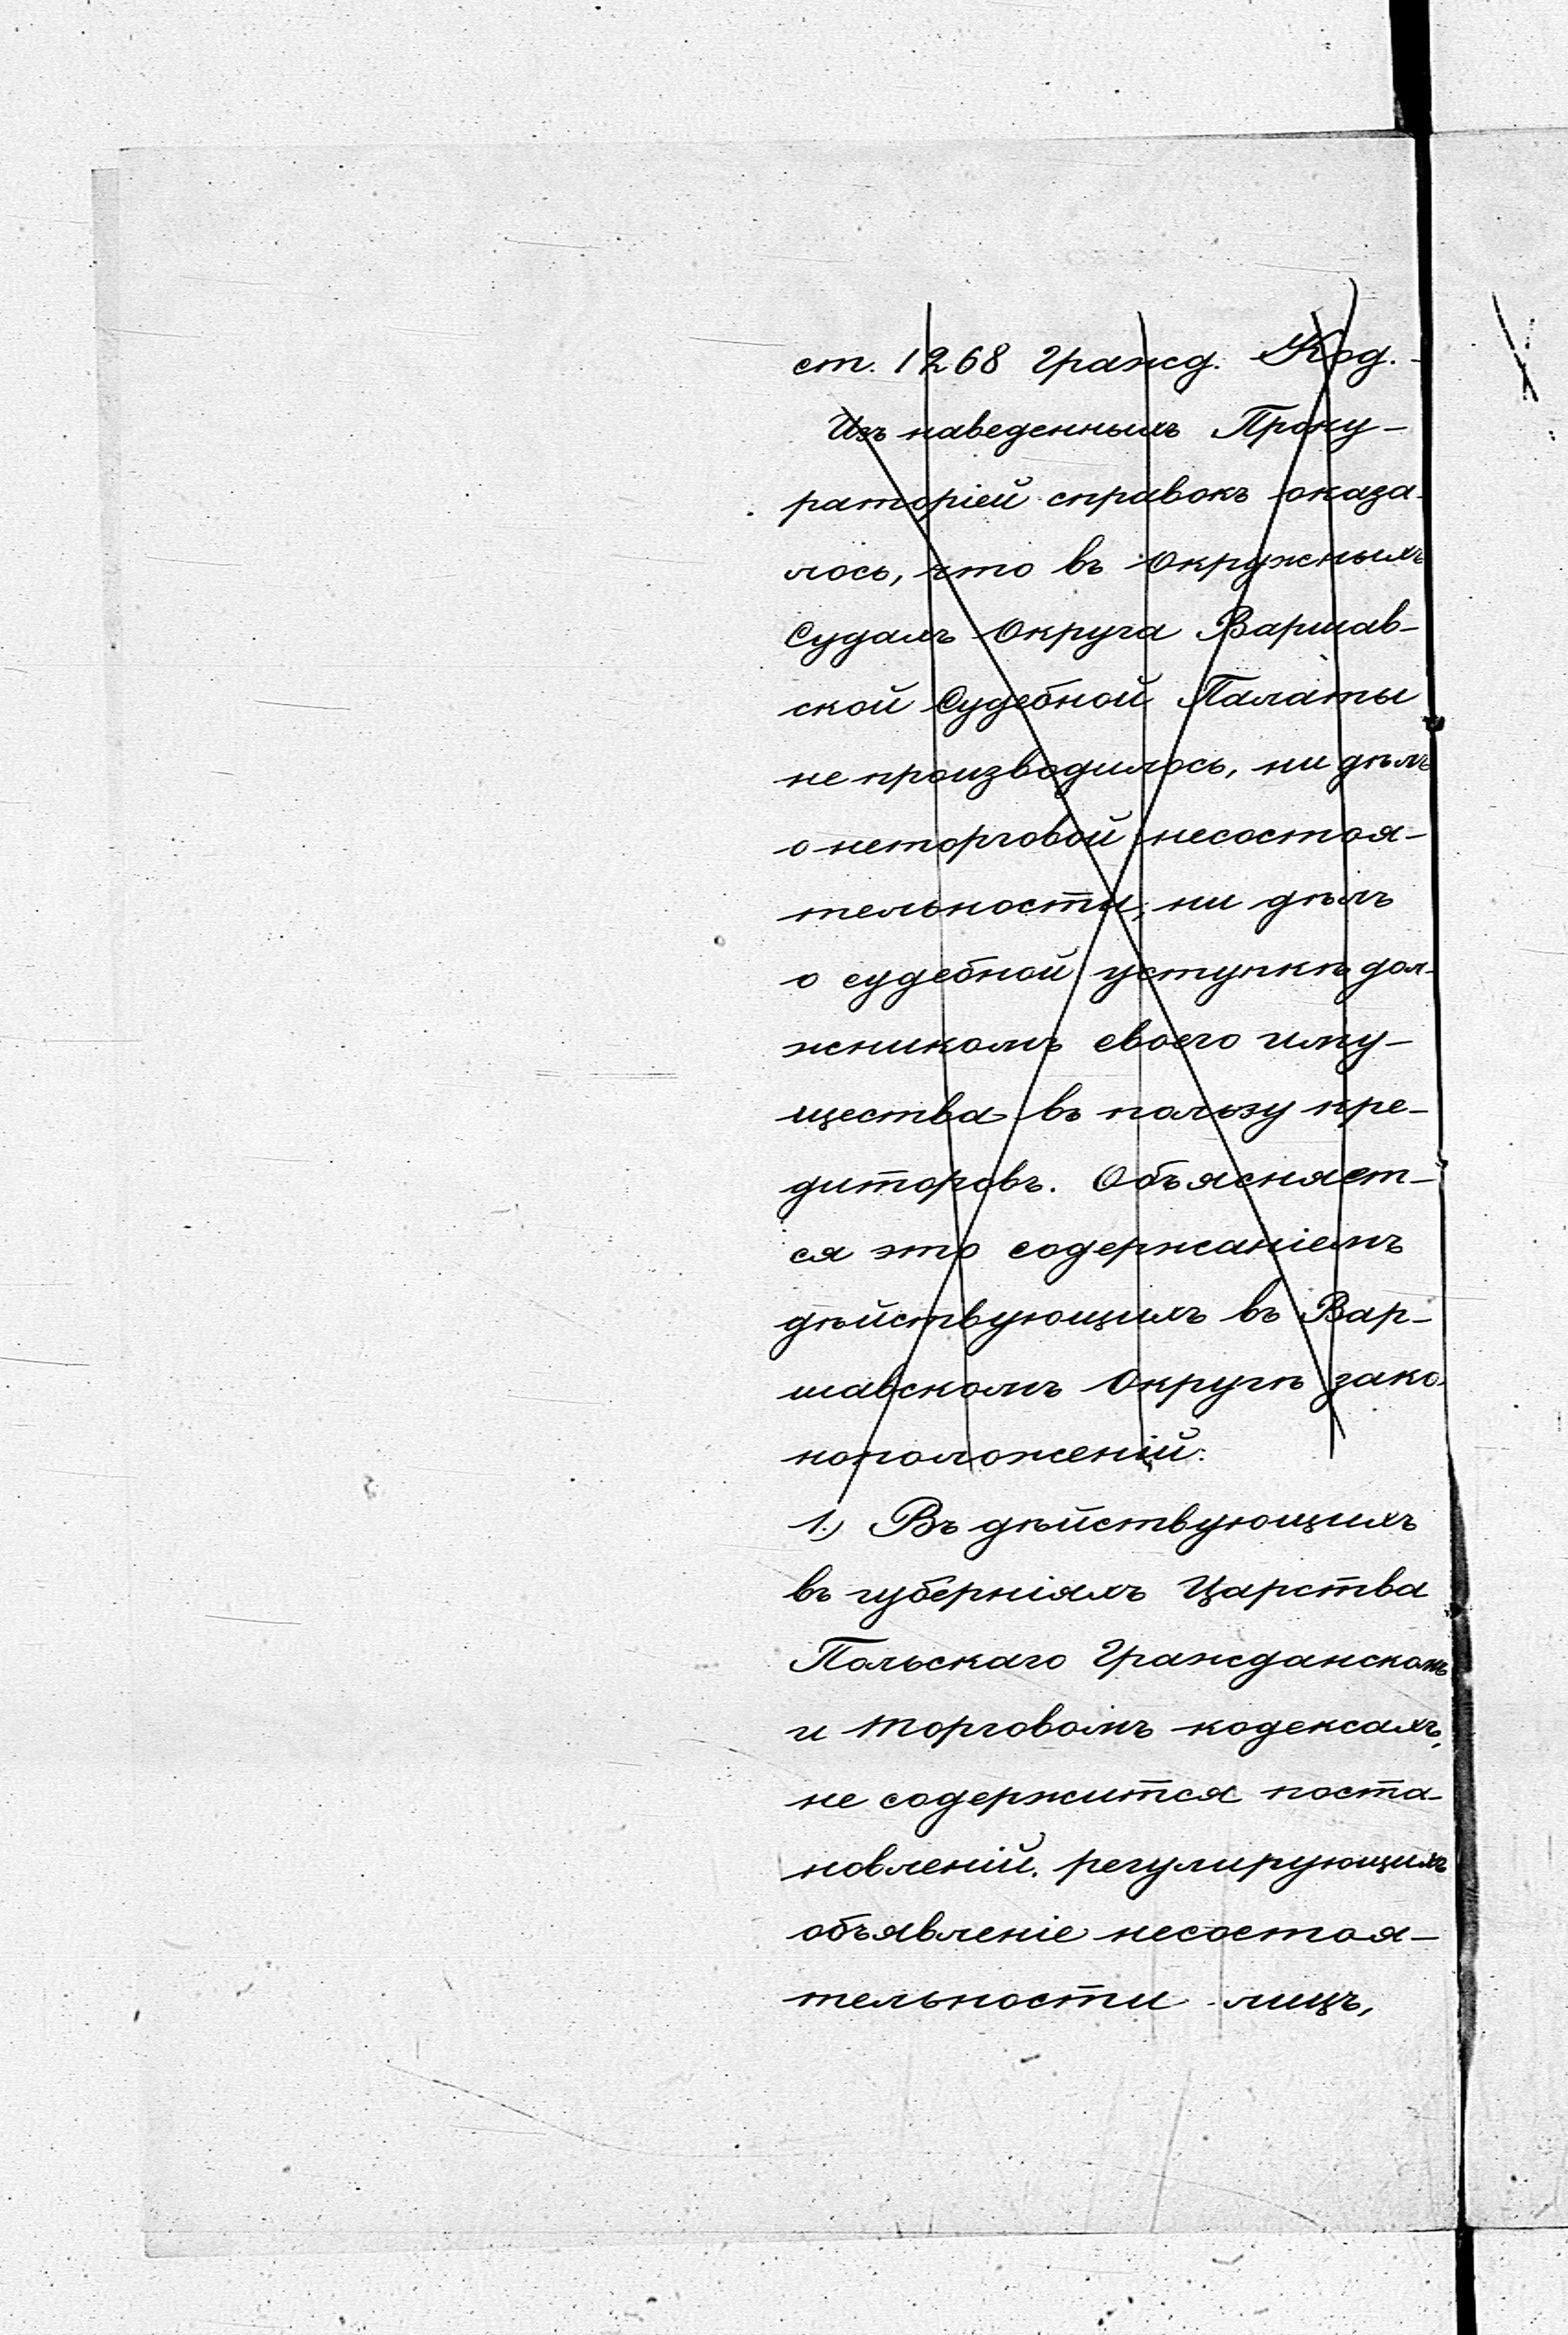 ст. 1268 Гражд. Код. -
Изъ наведенныхъ Проку-
раторіей справокъ оказа-
лось, что въ Окружныхъ
Судахъ Округа Варшав-
ской Судебной Палаты
не производилось, ни дѣлъ
о неторговой несостоя-
тельности, ни дѣлъ
о судебной уступкѣ дол-
жникомъ своего иму-
щества въ пользу кре-
диторовъ. Объясняет-
ся это содержаніемъ
дѣйствующихъ въ Вар-
шавскомъ Округѣ зако-
ноположеній:
1.) Въ дѣйствующихъ
въ губерніяхъ Царства
Польскаго Гражданскомъ
и Торговомъ кодексахъ,
не содержится поста-
новленій, регулирующихъ
объявленіе несостоя-
тельности лицъ,